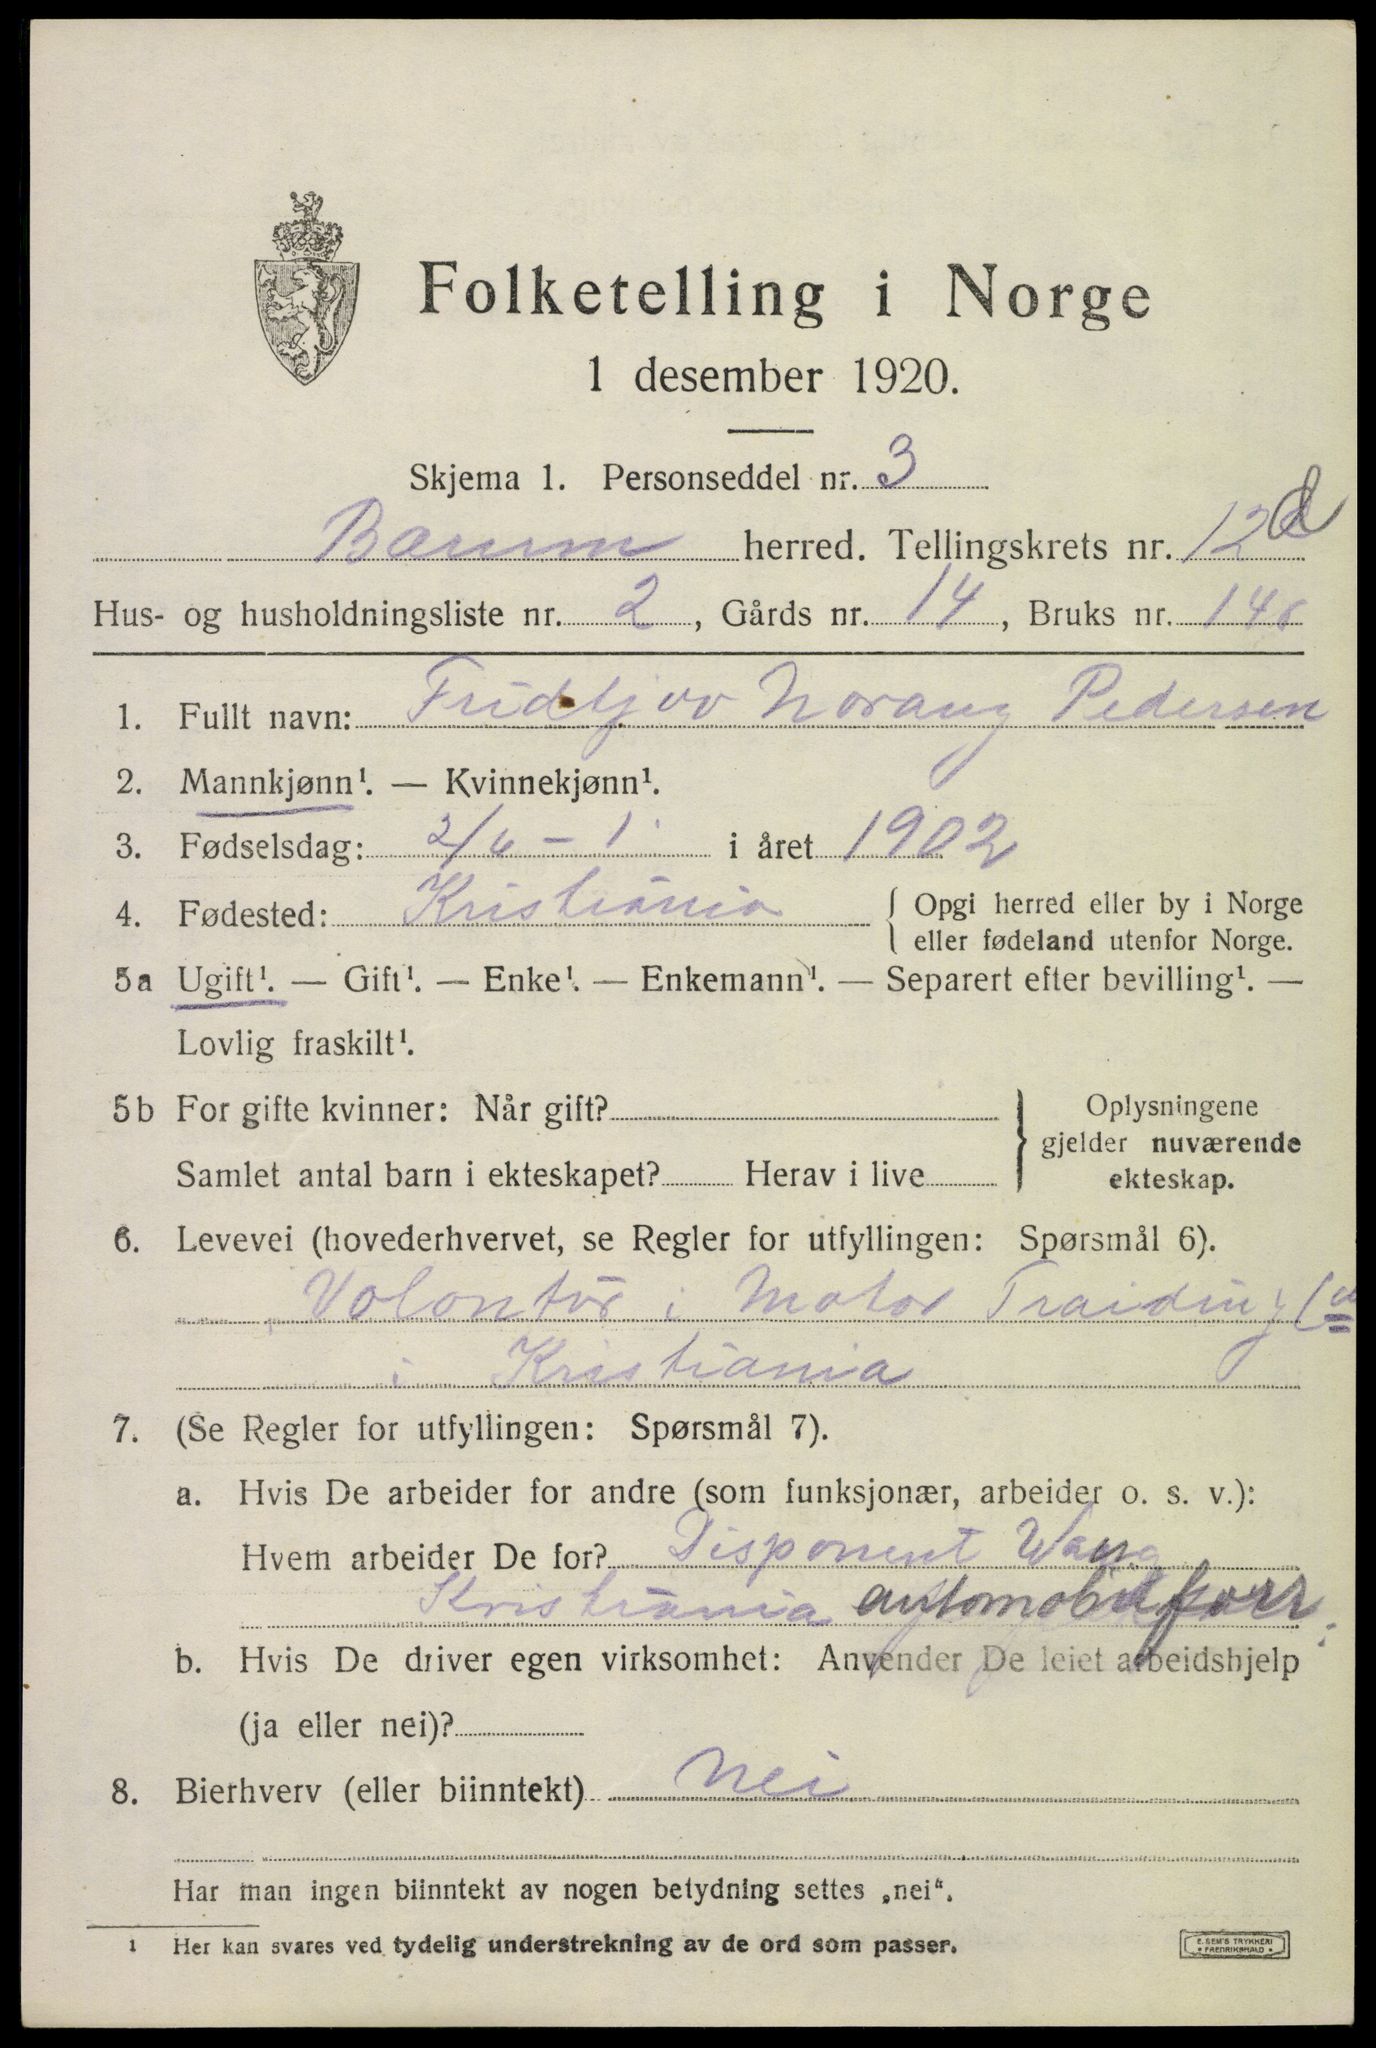 Folketelling i Norge
1 desember 1920.
Skjema 1. Personseddel nr. 3
Bærum herred. Tellingskrets nr. 12 d
Hus- og husholdningsliste nr. 2, Gårds nr. 14, Bruks nr. 146
1. Fullt navn: Fridtjov Norang Pedersen
2. Mannkjønn¹. — Kvinnekjønn¹.
3. Fødselsdag: 2/6 - 1 i året 1902
4. Fødested: Kristiania { Opgi herred eller by i Norge
eller fødeland utenfor Norge.
5a Ugift¹. — Gift¹. — Enke¹. — Enkemann¹. — Separert efter bevilling¹. —
Lovlig fraskilt¹.
5b For gifte kvinner: Når gift? } Oplysningene
gjelder nuværende
Samlet antal barn i ekteskapet? Herav i live ekteskap.
6. Levevei (hovederhvervet, se Regler for utfyllingen: Spørsmål 6).
Volontør i Motor Traiding Co
i Kristiania
7. (Se Regler for utfyllingen: Spørsmål 7).
a. Hvis De arbeider for andre (som funksjonær, arbeider o. s. v.):
Hvem arbeider De for? Disponent Wang
Kristiania automobilforr.
b. Hvis De driver egen virksomhet: Anvender De leiet arbeidshjelp
(ja eller nei)?
8. Bierhverv (eller biinntekt) Nei
Har man ingen biinntekt av nogen betydning settes „nei“.
¹ Her kan svares ved tydelig understrekning av de ord som passer.
E. SEM'S TRYKKERI
FREDRIKSHALD